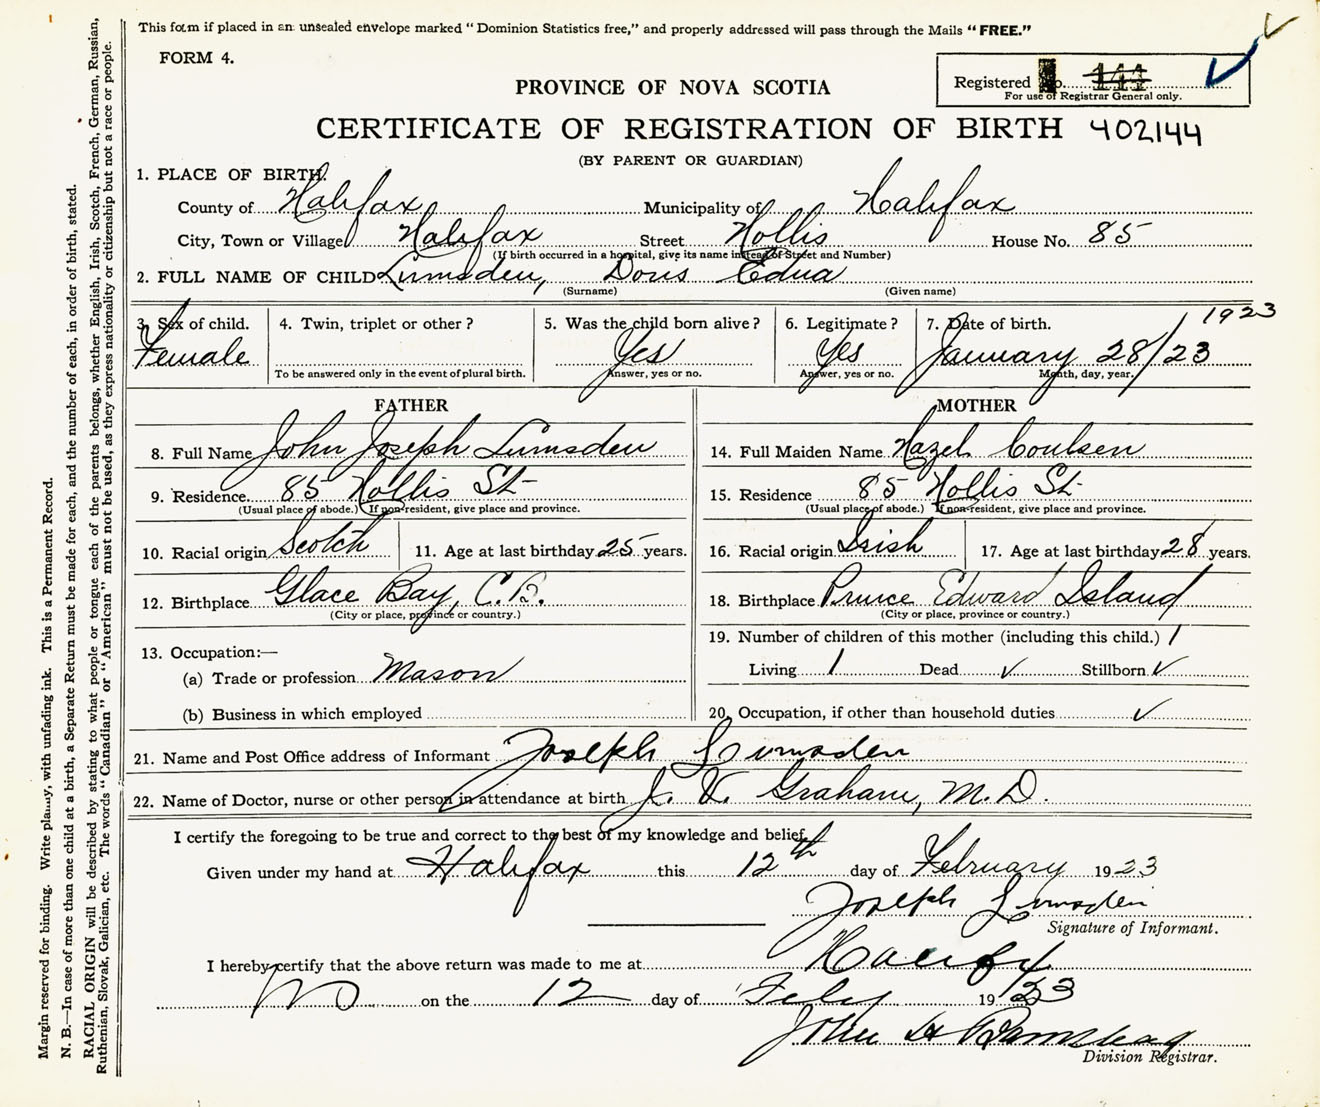 This form if placed in an unsealed envelope marked "Dominion Statistics free," and properly addressed will pass through the Mails "FREE."
FORM 4.
Registered No. 144
For use of Registrar General only.
PROVINCE OF NOVA SCOTIA
CERTIFICATE OF REGISTRATION OF BIRTH 402144
(BY PARENT OR GUARDIAN)
1. PLACE OF BIRTH.
County of Halifax Municipality of Halifax
City, Town or Village Halifax Street Hollis House No. 85
(If birth occurred in a hospital, give its name instead of Street and Number)
2. FULL NAME OF CHILD Lumsden, Doris Edna
(Surname) (Given name)
3. Sex of child. 4. Twin, triplet or other? 5. Was the child born alive? 6. Legitimate? 7. Date of birth. 1923
Female Yes Yes January 28/23
To be answered only in the event of plural birth. Answer, yes or no. Answer, yes or no. Month, day, year.
FATHER
8. Full Name John Joseph Lumsden
9. Residence 85 Hollis St
(Usual place of abode.) If non-resident, give place and province.
10. Racial origin Scotch 11. Age at last birthday 25 years.
12. Birthplace Glace Bay, C.B.
(City or place, province or country.)
13. Occupation:—
(a) Trade or profession Mason
(b) Business in which employed
MOTHER
14. Full Maiden Name Hazel Coulsen
15. Residence 85 Hollis St
(Usual place of abode.) If non-resident, give place and province.
16. Racial origin Irish 17. Age at last birthday 28 years.
18. Birthplace Prince Edward Island
(City or place, province or country.)
19. Number of children of this mother (including this child.) 1
Living 1 Dead ✓ Stillborn ✓
20. Occupation, if other than household duties ✓
21. Name and Post Office address of Informant Joseph Lumsden
22. Name of Doctor, nurse or other person in attendance at birth J. V. Graham, M.D.
I certify the foregoing to be true and correct to the best of my knowledge and belief.
Given under my hand at Halifax this 12th day of February 1923
Joseph Lumsden
Signature of Informant.
I hereby certify that the above return was made to me at Halifax
NS on the 12 day of Feby 1923
John H
Division Registrar.
Margin reserved for binding. Write plainly, with unfading ink. This is a Permanent Record.
N. B.—In case of more than one child at a birth, a Separate Return must be made for each, and the number of each, in order of birth, stated.
RACIAL ORIGIN will be described by stating to what people or tongue each of the parents belongs, whether English, Irish, Scotch, French, German, Russian,
Ruthenian, Slovak, Galician, etc. The words "Canadian" or "American" must not be used, as they express nationality or citizenship but not a race or people.